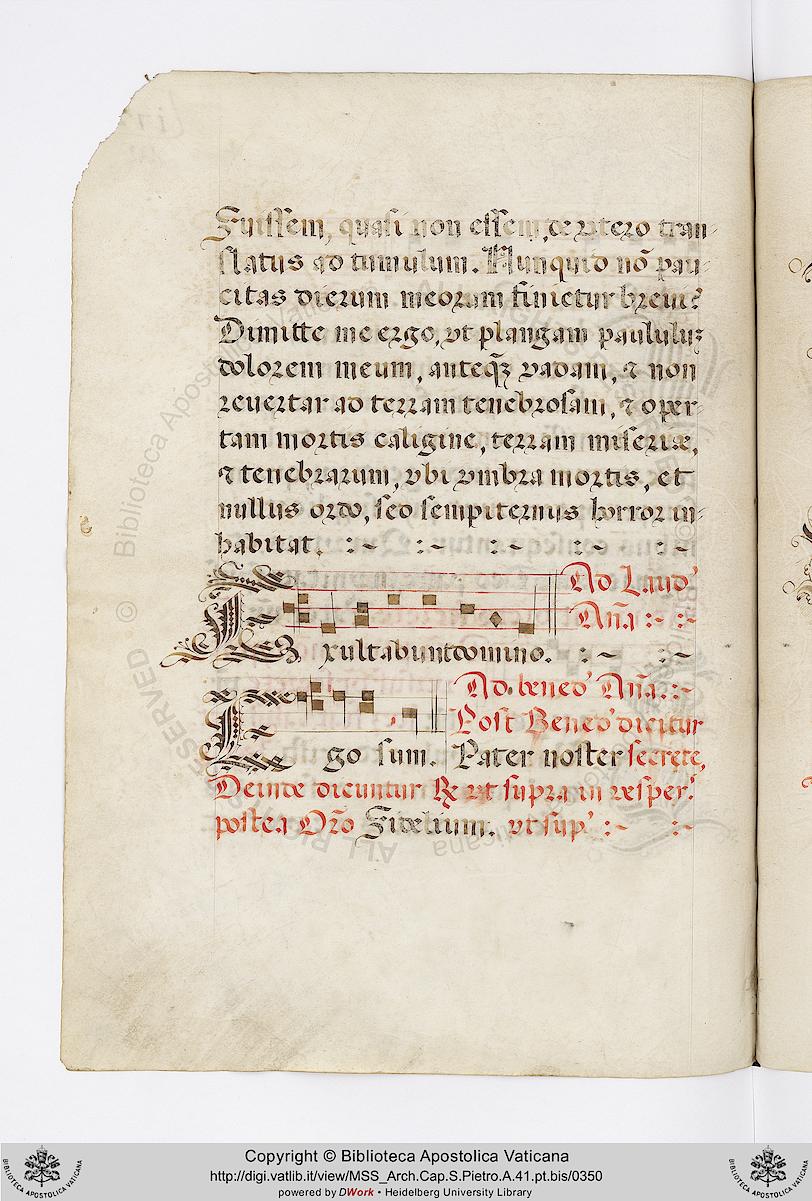 Fuissem, quasi non essem, de vtero tran-
slatus ad tumulum. Nunquid nõ pau-
citas dierum meorum finietur breui?
Dimitte me ergo, vt plangam paululuʒ
dolorem meum, anteqʒ vadam, ⁊ non
reuertar ad terram tenebrosam, ⁊ oper-
tam mortis caligine, terram miseriæ,
⁊ tenebrarum, vbi vmbra mortis, et
nullus ordo, sed sempiternus horror in-
habitat. :~ :~ :~ :~ :~
Ad Laud'
Añа :~ :~
Exultabunt domino. :~ :~
Ad bened' Añа. :~
Post Bened' dicitur
Ego sum. Pater noster secrete,
Deinde dicuntur ℞ vt supra in vesper'.
postea Orõ Fidelium. vt sup' :~ :~
Copyright © Biblioteca Apostolica Vaticana
http://digi.vatlib.it/view/MSS_Arch.Cap.S.Pietro.A.41.pt.bis/0350
powered by DWork • Heidelberg University Library